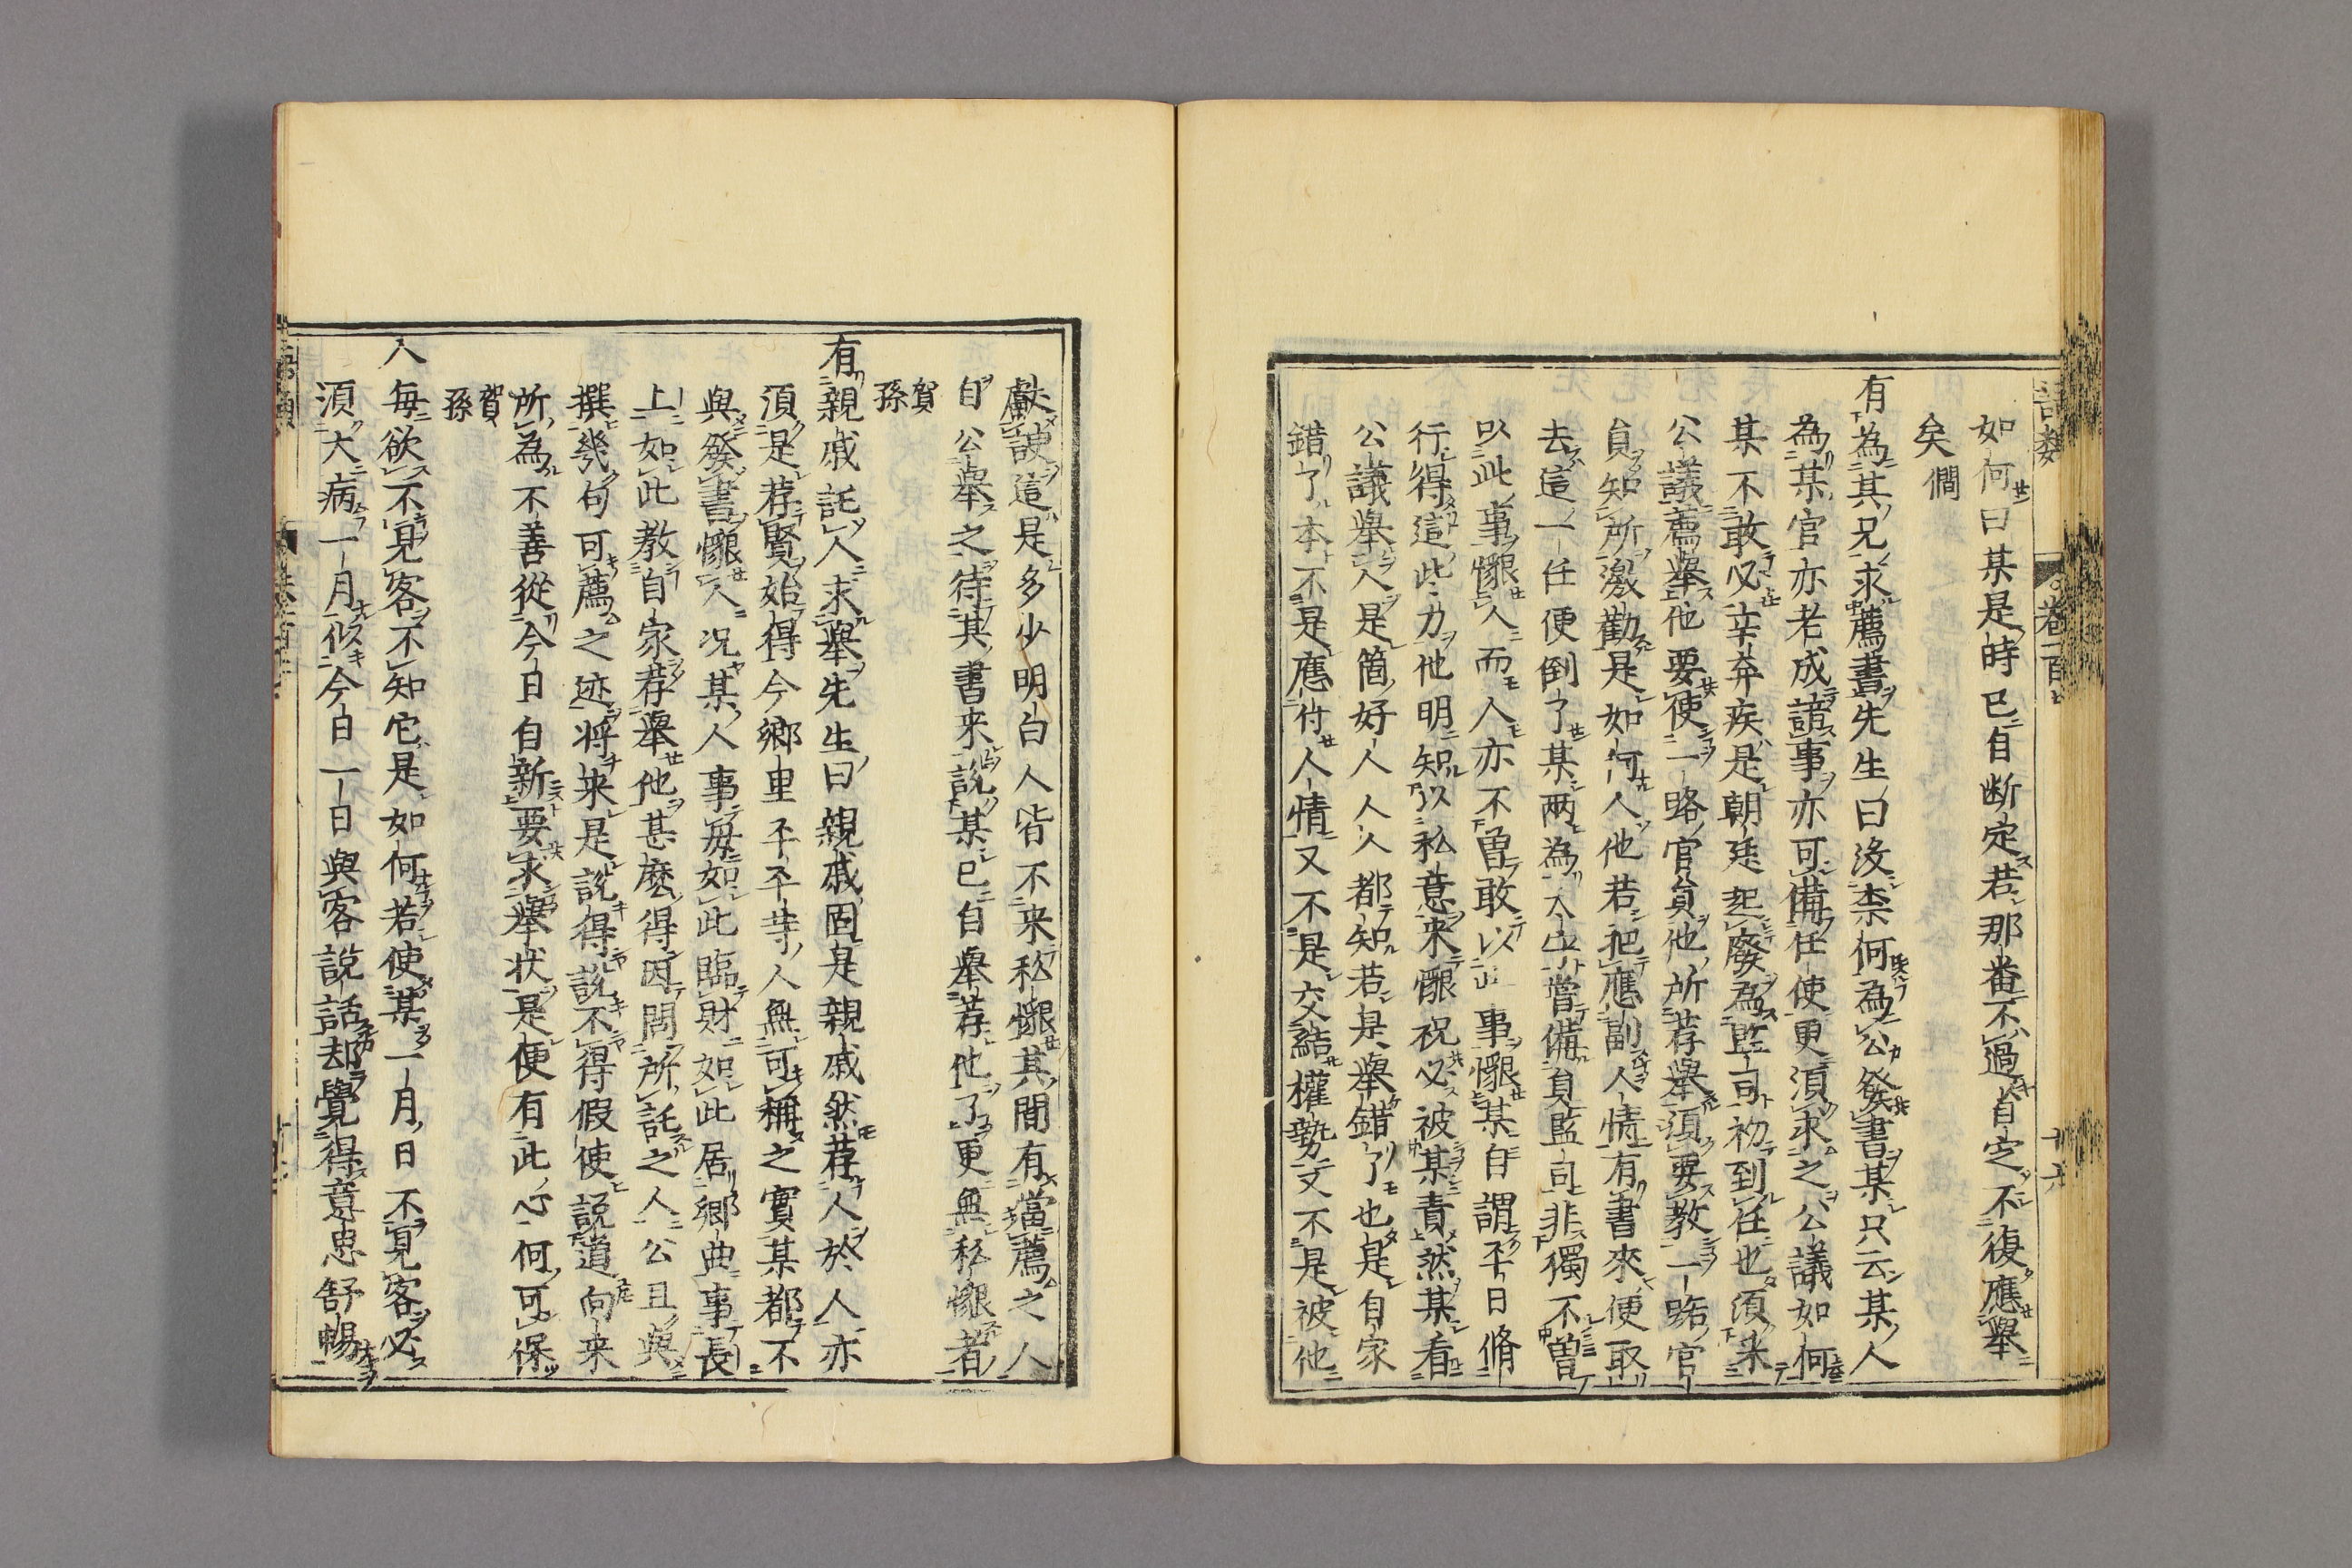 語類 卷一百七 十六
如何曰某是時已自斷定若那番不過自定不復應舉
矣 僩
有為其兄求薦書先生曰沒柰何為公發書某只云某人
為某官亦老成諳事亦可備任使更須求之公議如何
某不敢必辛弃疾是朝廷起廢為監司初到任也須來
公議薦舉他要使一路官員他所荐舉須要教一路官
員知所激勸是如何人他若把應副人情有書來便取
去這一任便倒了某兩為 當備員監司非獨不曽
以此事懇人而人亦不曽敢以 事懇某自謂平日脩
行得這些力他明知以私意來懇祝必被某責然某看
公議舉人是箇好人人人都知若是舉錯了也是自家
錯了本不是應付人情又不是交結權勢又不是被他
獻諛這是多少明白人皆不来私懇其間有當薦之人
自公舉之待其書来說某已自舉荐他了更無私懇者
賀孫
有親戚託人求舉先生曰親戚固是親戚然荐人於人亦
須是荐賢始得今鄉里平平等人無可稱之實某都不
與發書懇人況某人事毎如此臨財如此居鄉曲事長
上如此教自家荐舉他甚麽得因問所託之人公且與
撰幾句可薦之迹将来是說得說不得假使說道向来
所為不善從今日自新要求舉状是便有此心何可保
賀孫
人毎欲不見客不知它是如何若使某一月日不見客必
須大病一月似今日一日與客說話却覺得意思舒暢